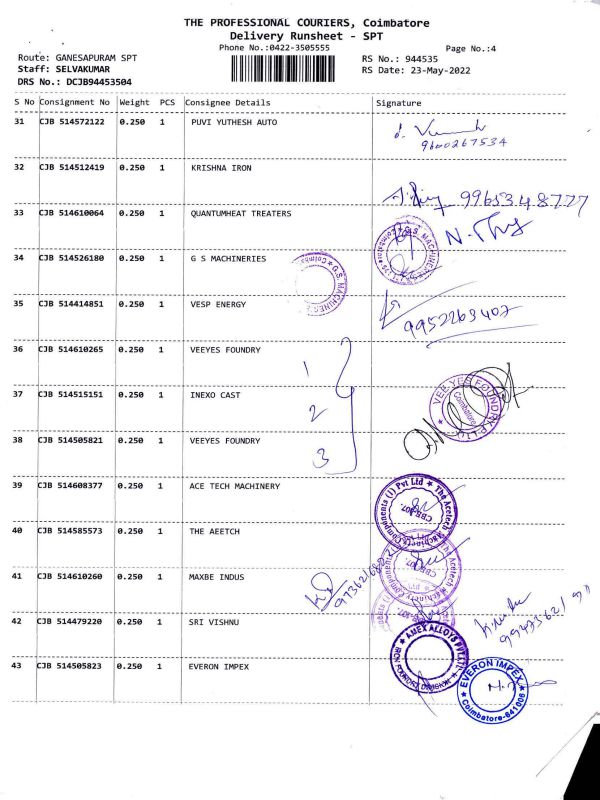 THE PROFESSIONAL COURIERS, Coimbatore
Delivery Runsheet - SPT
Phone No.:0422-3505555
Page No.:4
Route: GANESAPURAM SPT
RS No.: 944535
Staff: SELVAKUMAR
RS Date: 23-May-2022
DRS No.: DCJB94453504
S No Consignment No Weight PCS Consignee Details Signature
31 CJB 514572122 0.250 1 PUVI YUTHESH AUTO
9600267534
32 CJB 514512419 0.250 1 KRISHNA IRON
9965348777
33 CJB 514610064 0.250 1 QUANTUMHEAT TREATERS
34 CJB 514526180 0.250 1 G S MACHINERIES
35 CJB 514414851 0.250 1 VESP ENERGY
9952263402
36 CJB 514610265 0.250 1 VEEYES FOUNDRY
1
VEE YES FOUNDRY P. LTD
Coimbatore
37 CJB 514515151 0.250 1 INEXO CAST
2
38 CJB 514505821 0.250 1 VEEYES FOUNDRY
3
39 CJB 514608377 0.250 1 ACE TECH MACHINERY
The Acetech Machinery Components (I) Pvt Ltd
CBE-107.
40 CJB 514585573 0.250 1 THE AEETCH
41 CJB 514610260 0.250 1 MAXBE INDUS
42 CJB 514479220 0.250 1 SRI VISHNU
43 CJB 514505823 0.250 1 EVERON IMPEX
EVERON IMPEX
Coimbatore-641006